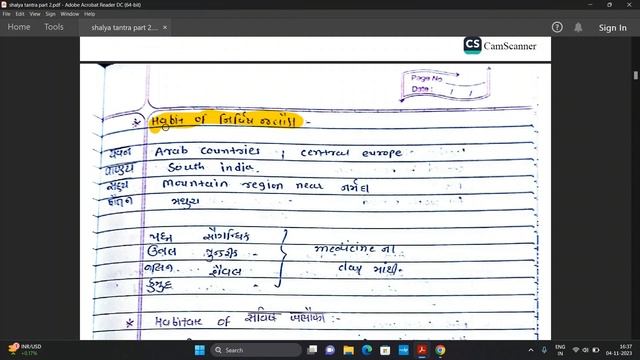 shalya tantra part 2.pdf - Adobe Acrobat Reader DC (64-bit)
File Edit View Sign Window Help
Home Tools shalya tantra part 2.... × Sign In
CS CamScanner
Page No
Date: / /
* Habitat of નિર્વિષ જલૌકા :-
યવન Arab countries ; central europe
પાણ્ડય South india.
સહ્ય Mountain region near નર્મદા
મથુરા
પદ્મ સૌગન્ધિક
ઉત્પલ પુન્ડરીક
નલિન શૈવલ
કુમુદ
* Habitat of સવિષ જલૌકા :-
INR/USD
+0.17%
Search
ENG
IN
16:37
04-11-2023